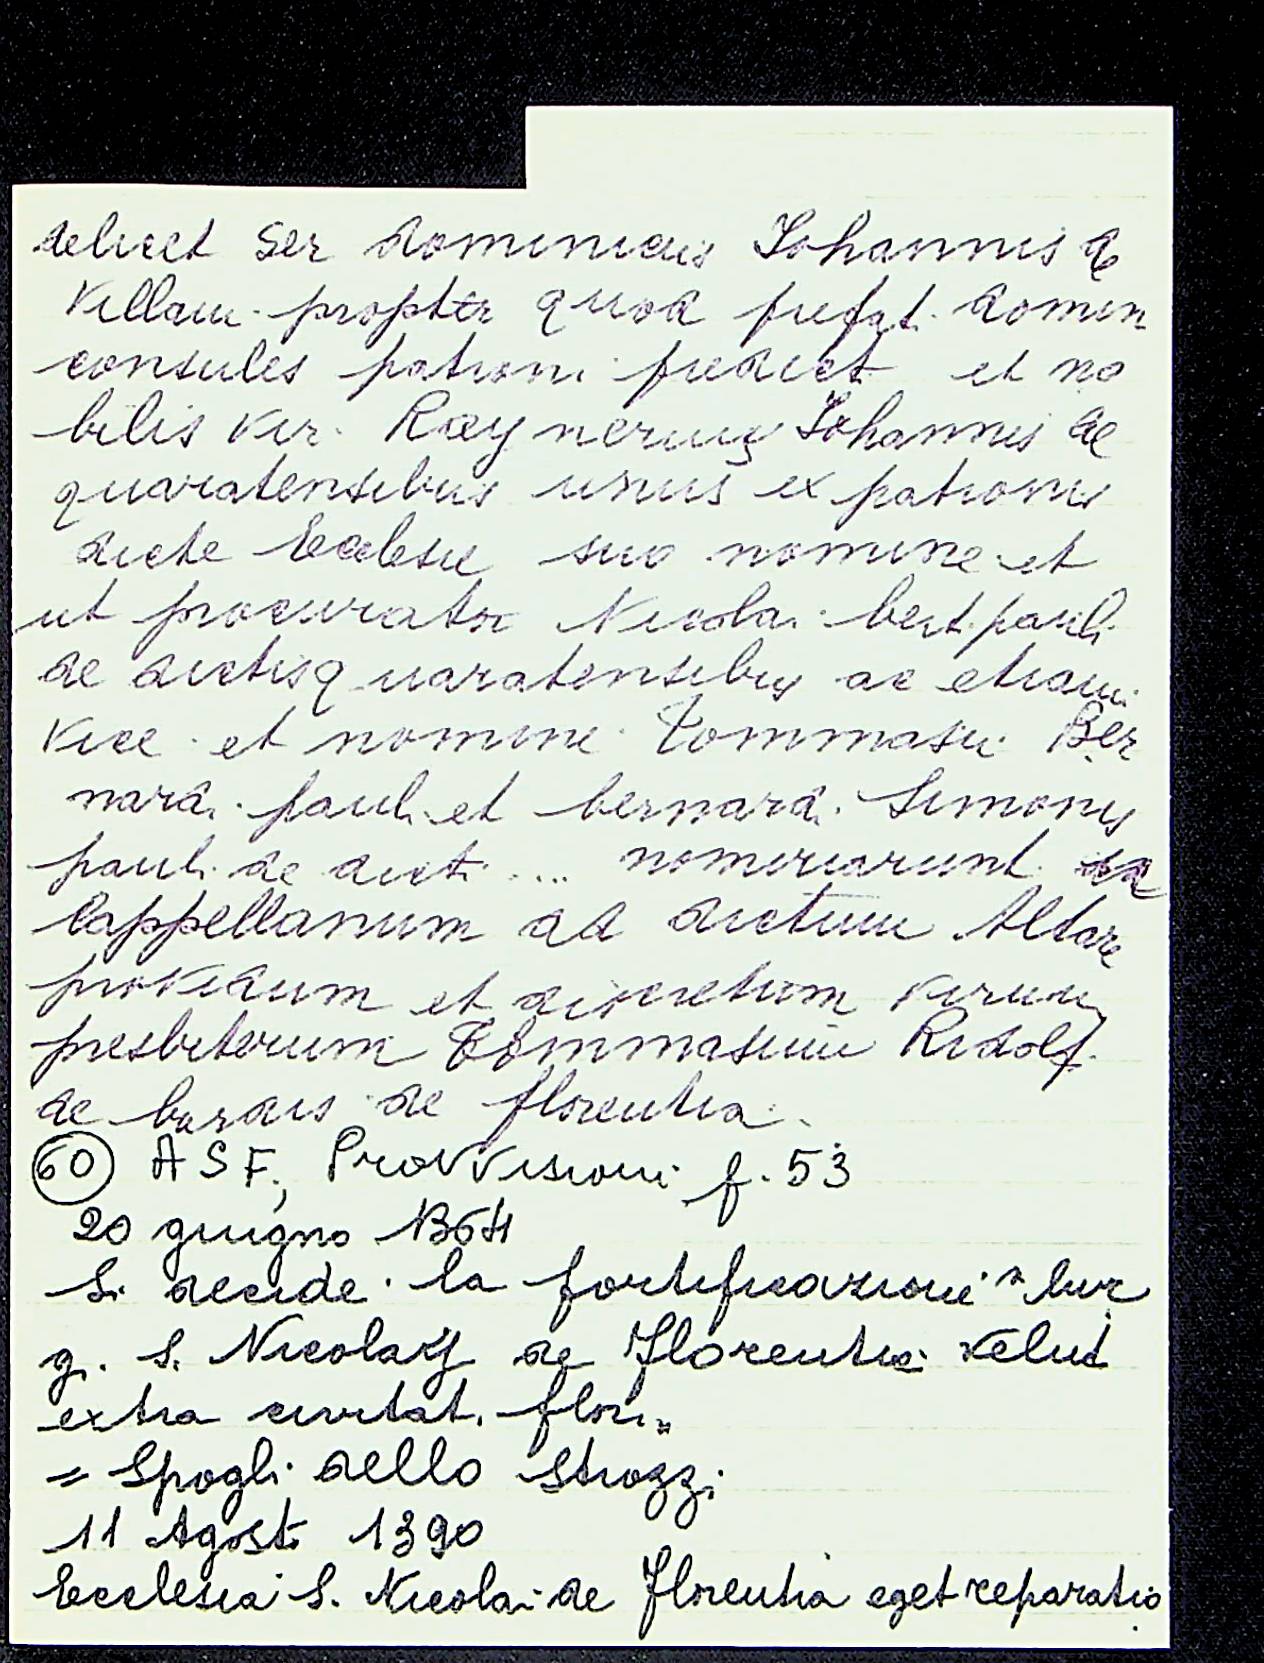 delicet Ser dominicus Iohannis de
Villam. propter quod prefat. domin
consules patroni predict et no
bilis vir. Raynerius Iohannis de
quaratensibus unus ex patronis
dicte Ecclesie suo nomine et
ut procurator Nicolai bert. pauli
de dictis quaratensibus ac etiam
vice et nomine Tommasii Ber
nardi. pauli et bernardi. Simonis
pauli de dicti .... nominarunt
Cappellanum ad dictum Altare
providum et discretum virum
presbiterum Tommasium Ridolf.
de bardis de florentia.
60 ASF, Provvisioni f. 53
20 giugno 1364
Si decide la fortificazione "bur
g. S. Nicolay de Florentia velut
extra civitat. flor."
= Spogli dello Strozzi
11 Agosto 1390
Ecclesia S. Nicolai de Florentia eget reparatio